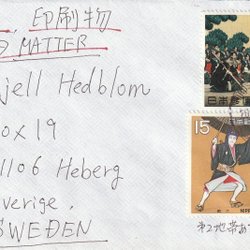 印刷物
MATTER
jell Hedblom
ox 19
1106 Heberg
verige.
SWEDEN
15